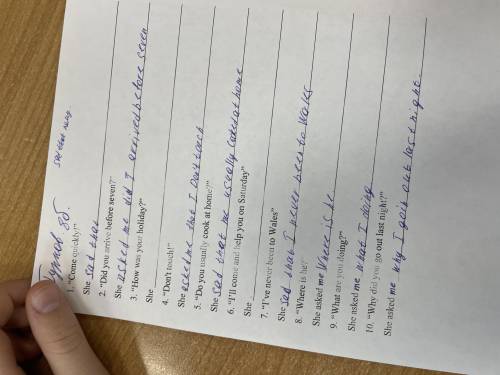 say that
1. "Come quickly!"
She sad that
2. "Did you arrive before seven?"
She asked me did I arrived before seven
3. "How was your holiday?"
She
4. "Don't touch!"
She asked me that I Dont touch
5. "Do you usually cook at home?"
She sad that me usually cooks at home
6. "I'll come and help you on Saturday"
She
7. "I've never been to Wales"
She sad that I never been to Wales
8. "Where is he?"
She asked me Where is he
9. "What are you doing?"
She asked me what I doing
10. "Why did you go out last night?"
She asked me why I goin out last night.